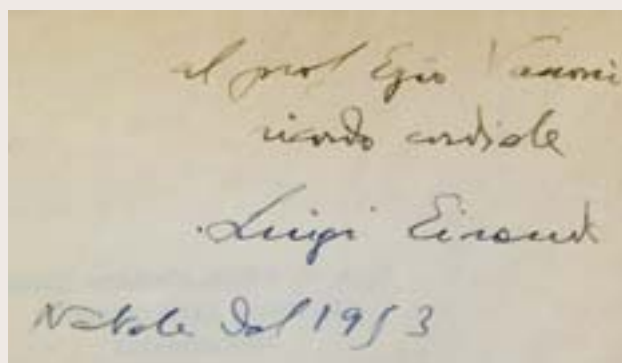 al prof Ezio Vanoni
ricordo cordiale
Luigi Einaudi
Natale del 1953